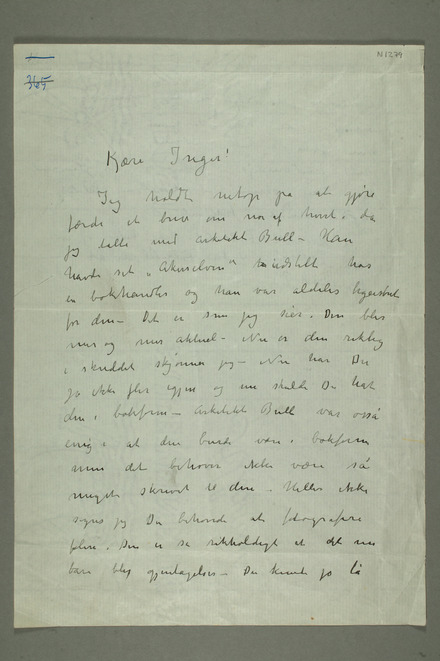 N1279
365
Kjære Inger!
Jeg holdt netop på at gjøre
færdi et brev om noe af hvert. da
jeg talte med arkitekt Bull – Han
havde set „Akerselven" udstillt hos
en bokhandler og han var aldeles begeistret
for den – Det er som jeg sier. Den blir
mer og mer aktuel – Nu er den riktig
i skuddet skjønner jeg – Nu har Du
jo ikke fler igjen og nu skulde Du hat
den i bokform – Arkitekt Bull var også
enig i at den burde være i bokform
men det behøver ikke være så
meget skrevet til den – Heller ikke
synes jeg Du behøvde at fotografere
flere. Den er så rikholdigt at det nu
bare blir gjentagelser – Du kunde jo la